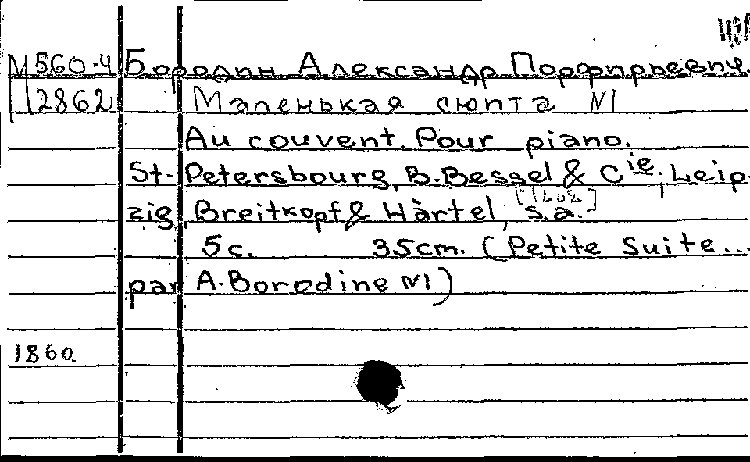 М560-4 Бородин Александр Порфирьевич.
П2862 Маленькая сюита №1
Au couvent. Pour piano.
St-Petersbourg, B. Bessel & Cie, Leip-
zig, Breitkopf & Härtel, s.a.
5c. 35cm. (Petite Suite...
par A. Borodine №1)
1860